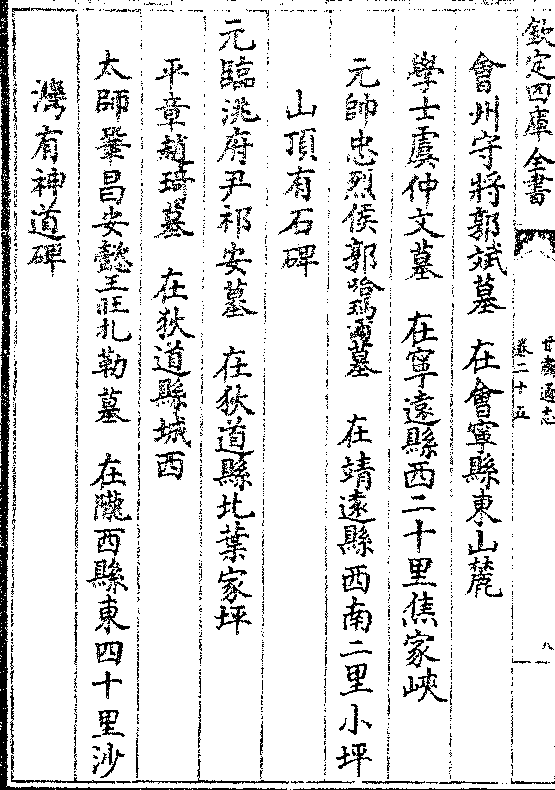 欽定四庫全書
甘肅通志
卷二十五
八
會州守將郭斌墓　在會寧縣東山麓
學士虞仲文墓　在寧遠縣西二十里焦家峽
元帥忠烈侯郭哈瑪爾墓　在靖遠縣西南二里小坪
山頂有石碑
元臨洮府尹祁安墓　在狄道縣北葉家坪
平章趙琦墓　在狄道縣城西
太師鞏昌安懿王旺扎勒墓　在隴西縣東四十里沙
灣有神道碑